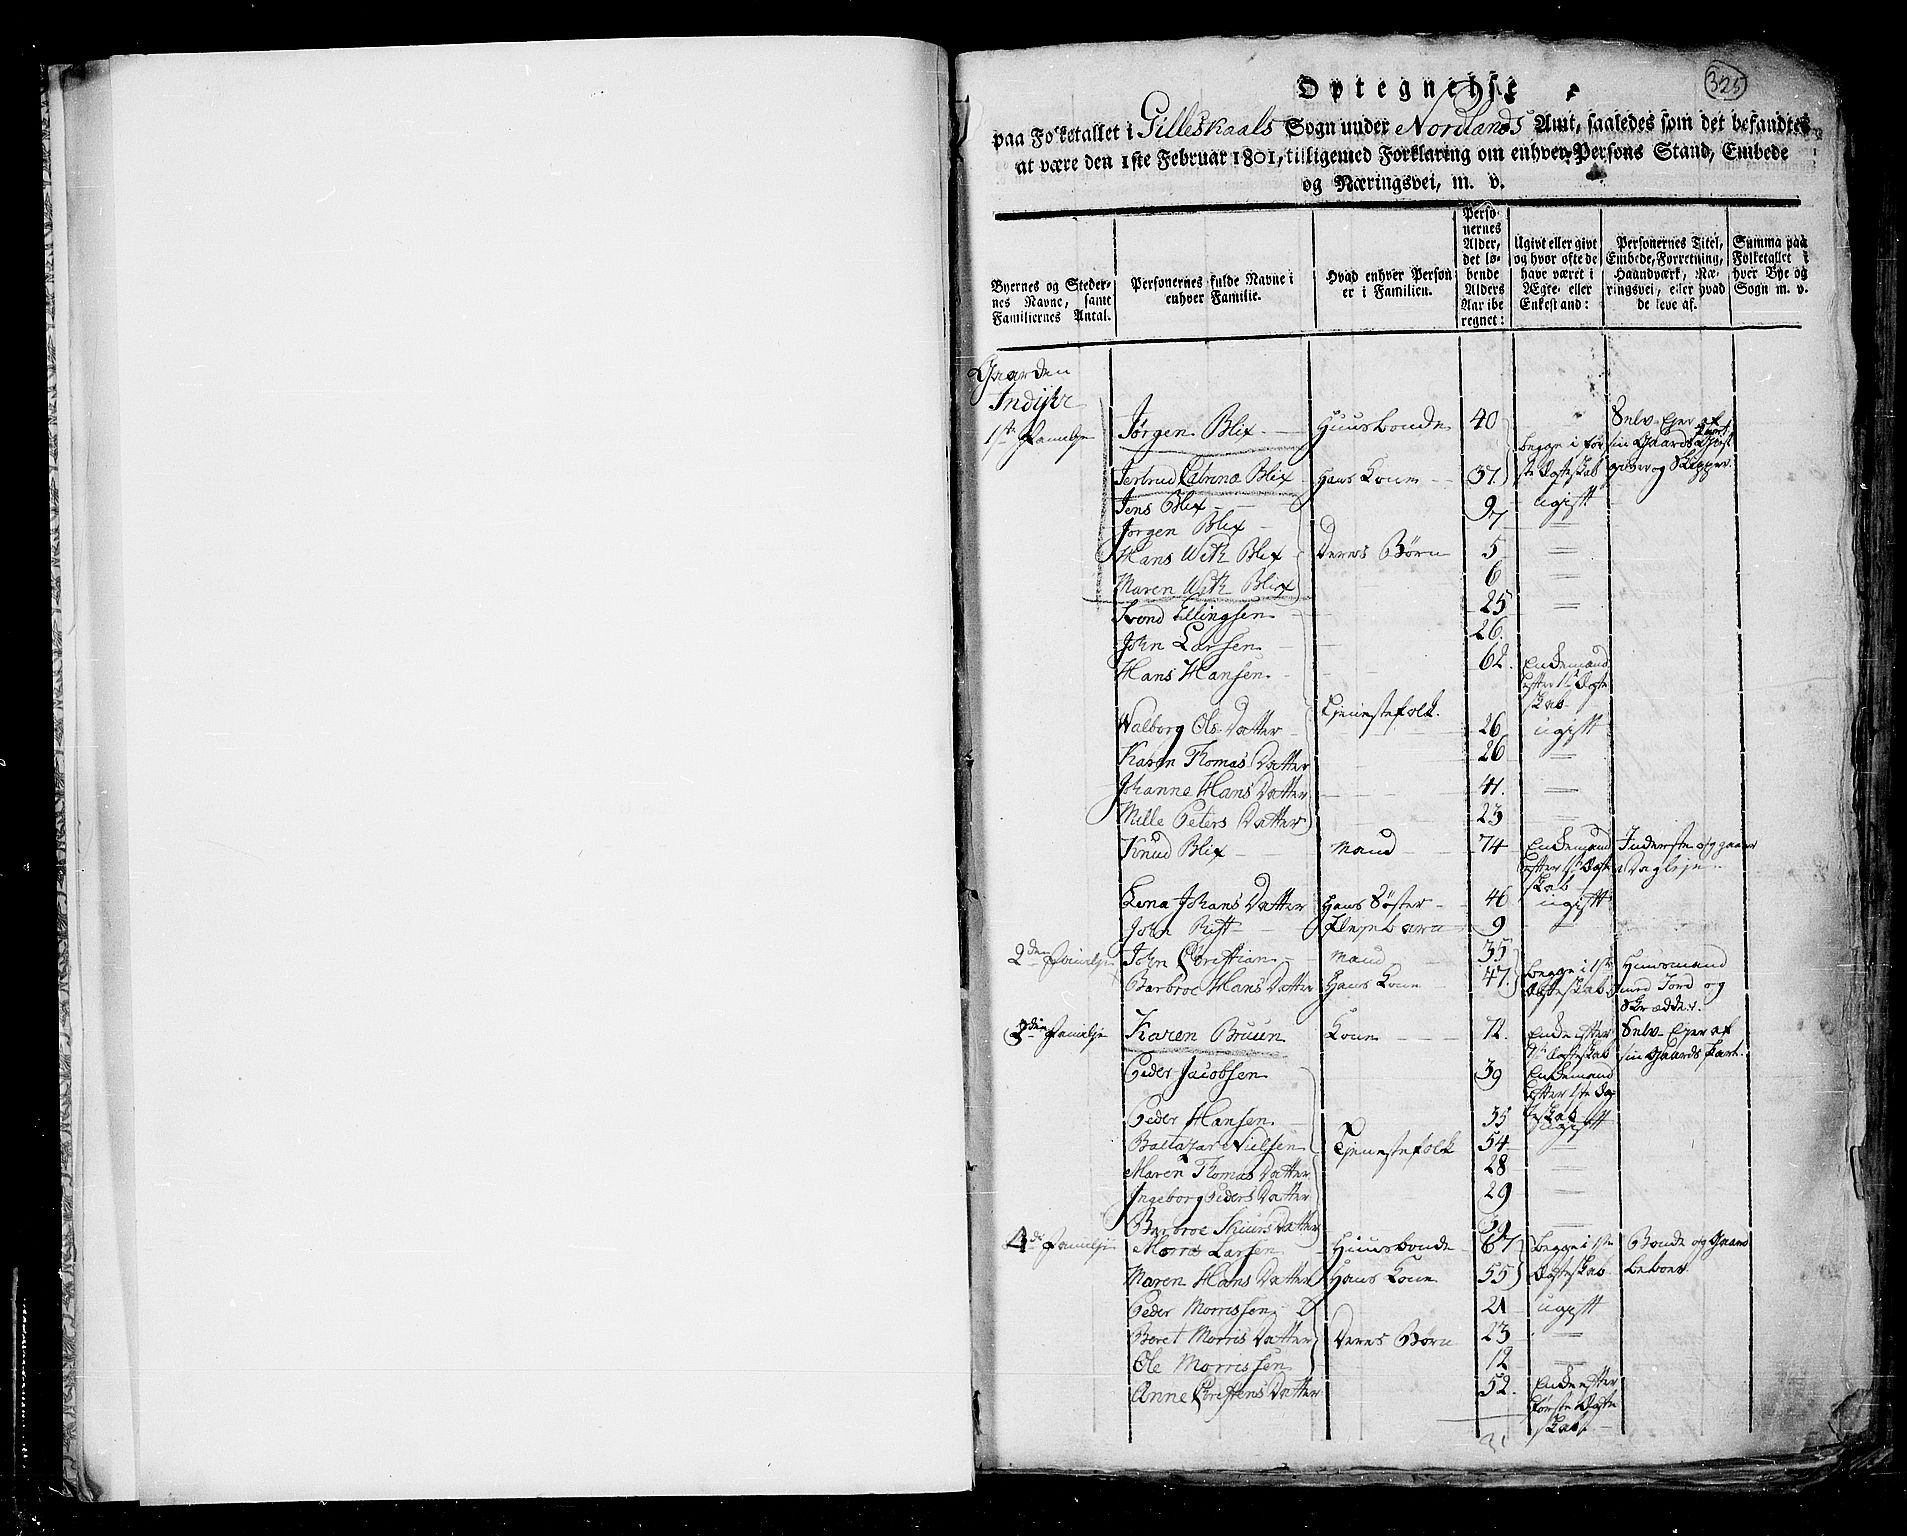 325
Optegnelse
paa Folketallet i Gilleskaals Sogn under Nordlands Amt, saaledes som det befandtes
at være den 1ste Februar 1801, tilligemed Forklaring om enhver Persons Stand, Embede
og Næringsvei, m. v.
Byernes og Stedernes Navne, samt Familiernes Antal.
Personernes fulde Navne i enhver Familie.
Hvad enhver Person er i Familien.
Personernes Alder, det løbende Alders Aar iberegnet:
Ugivt eller givt og hvor ofte de have været i Ægte- eller Enkestand:
Personernes Titel, Embede, Forretning, Haandværk, Næringsvei, eller hvad de leve af.
Summa paa Folketallet i hver Bye og Sogn m. v.
Gaarden
Indijhr
1ste Familje Jørgen Blix Huusbonde 40 begge i første Ægteskab Selv-Ejer af sin Gaards Part Gjestgiver og Skipper.
Jertrud Catrina Blix Hans Kone 37
Jens Blix 9 ugift
Jørgen Blix 7 =
Hans With Blix Deres Børn 5 =
Maren With Blix 6 =
Trond Ellingsen 25 =
John Larsen 26.
Hans Hansen 62. Enkemand efter 1ste Ægteskab
Tjenestefolk.
Walborg Ols Datter 26 ugift
Karen Thomas Datter 26 =
Johanne Hans Datter 41. =
Mille Peters Datter 23 =
Knud Blix Mand 74 Enkemand efter 1ste Ægteskab Inderste og gaar i Dagleje
Lena Johans Datter Hans Søster 46 ugift
John Rist Plejebarn 9 =
2den Familje John Christian Mand 35 begge i 1ste Ægteskab Huusmand med Jord og Skrædder.
Barbroe Hans Datter Hans Kone 47.
3die Familje Karen Bruun Kone 72. Enke efter 1ste Ægteskab Selv-Ejer af sin Gaards Part.
Peder Jacobsen 39 Enkemand efter 1ste Ægteskab
Peder Hansen 35 ugift
Baltazar Nielsen Tjenestefolk 54 =
Maren Thomas Datter 28 =
Ingeborg Peders Datter 29 =
Barbroe Siurs Datter 39 =
4de Familje Morris Larsen Huusbonde 67 begge i 1ste Ægteskab Bonde og Gaardbeboer
Maren Hans Datter Hans Kone 55
Peder Morrissen 21 ugift
Beret Morris Datter Deres Børn 23 =
Ole Morrissen 12 =
Anne Christens Datter 52. Enke efter første Ægteskab
31